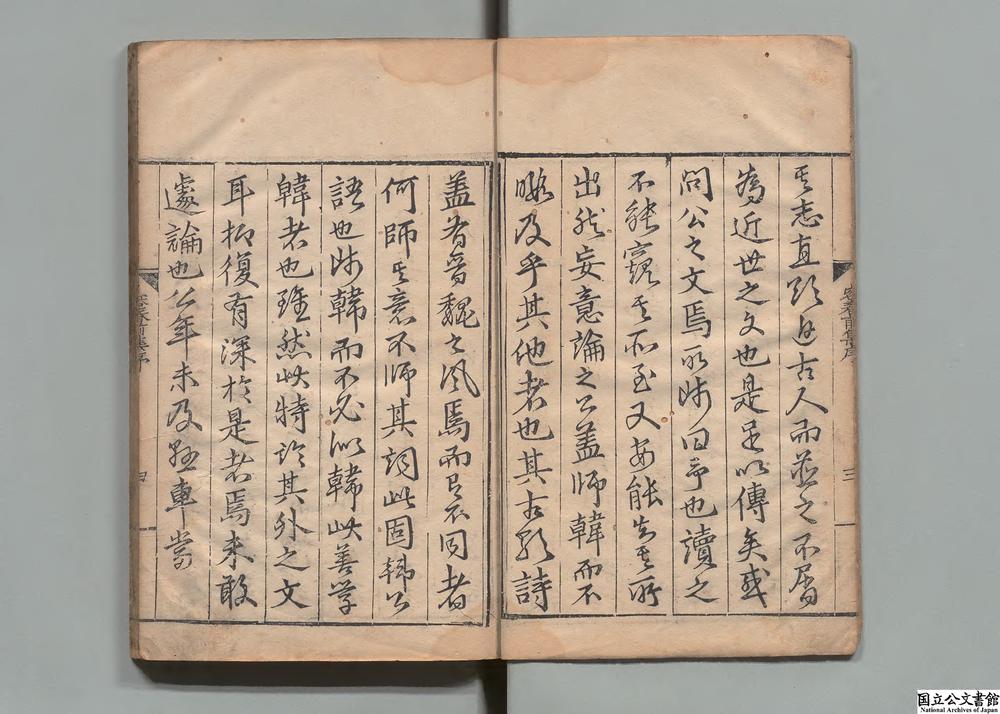 其志直欲追古人而並之不屑
為近世之文也是足以傳矣或
問公之文焉所師曰予也讀之
不能窺其所至又安能知其所
出然妄意論之公蓋師韓而不
暇及乎其他者也其古歌詩
蓋有晉魏之風焉而不同者
何師其意不師其詞此固韓公
語也師韓而不必似韓此善学
韓者也雖然此特論其外之文
耳抑復有深於是者焉未敢
遽論也公年未及懸車嘗
三
四
国立公文書館
National Archives of Japan